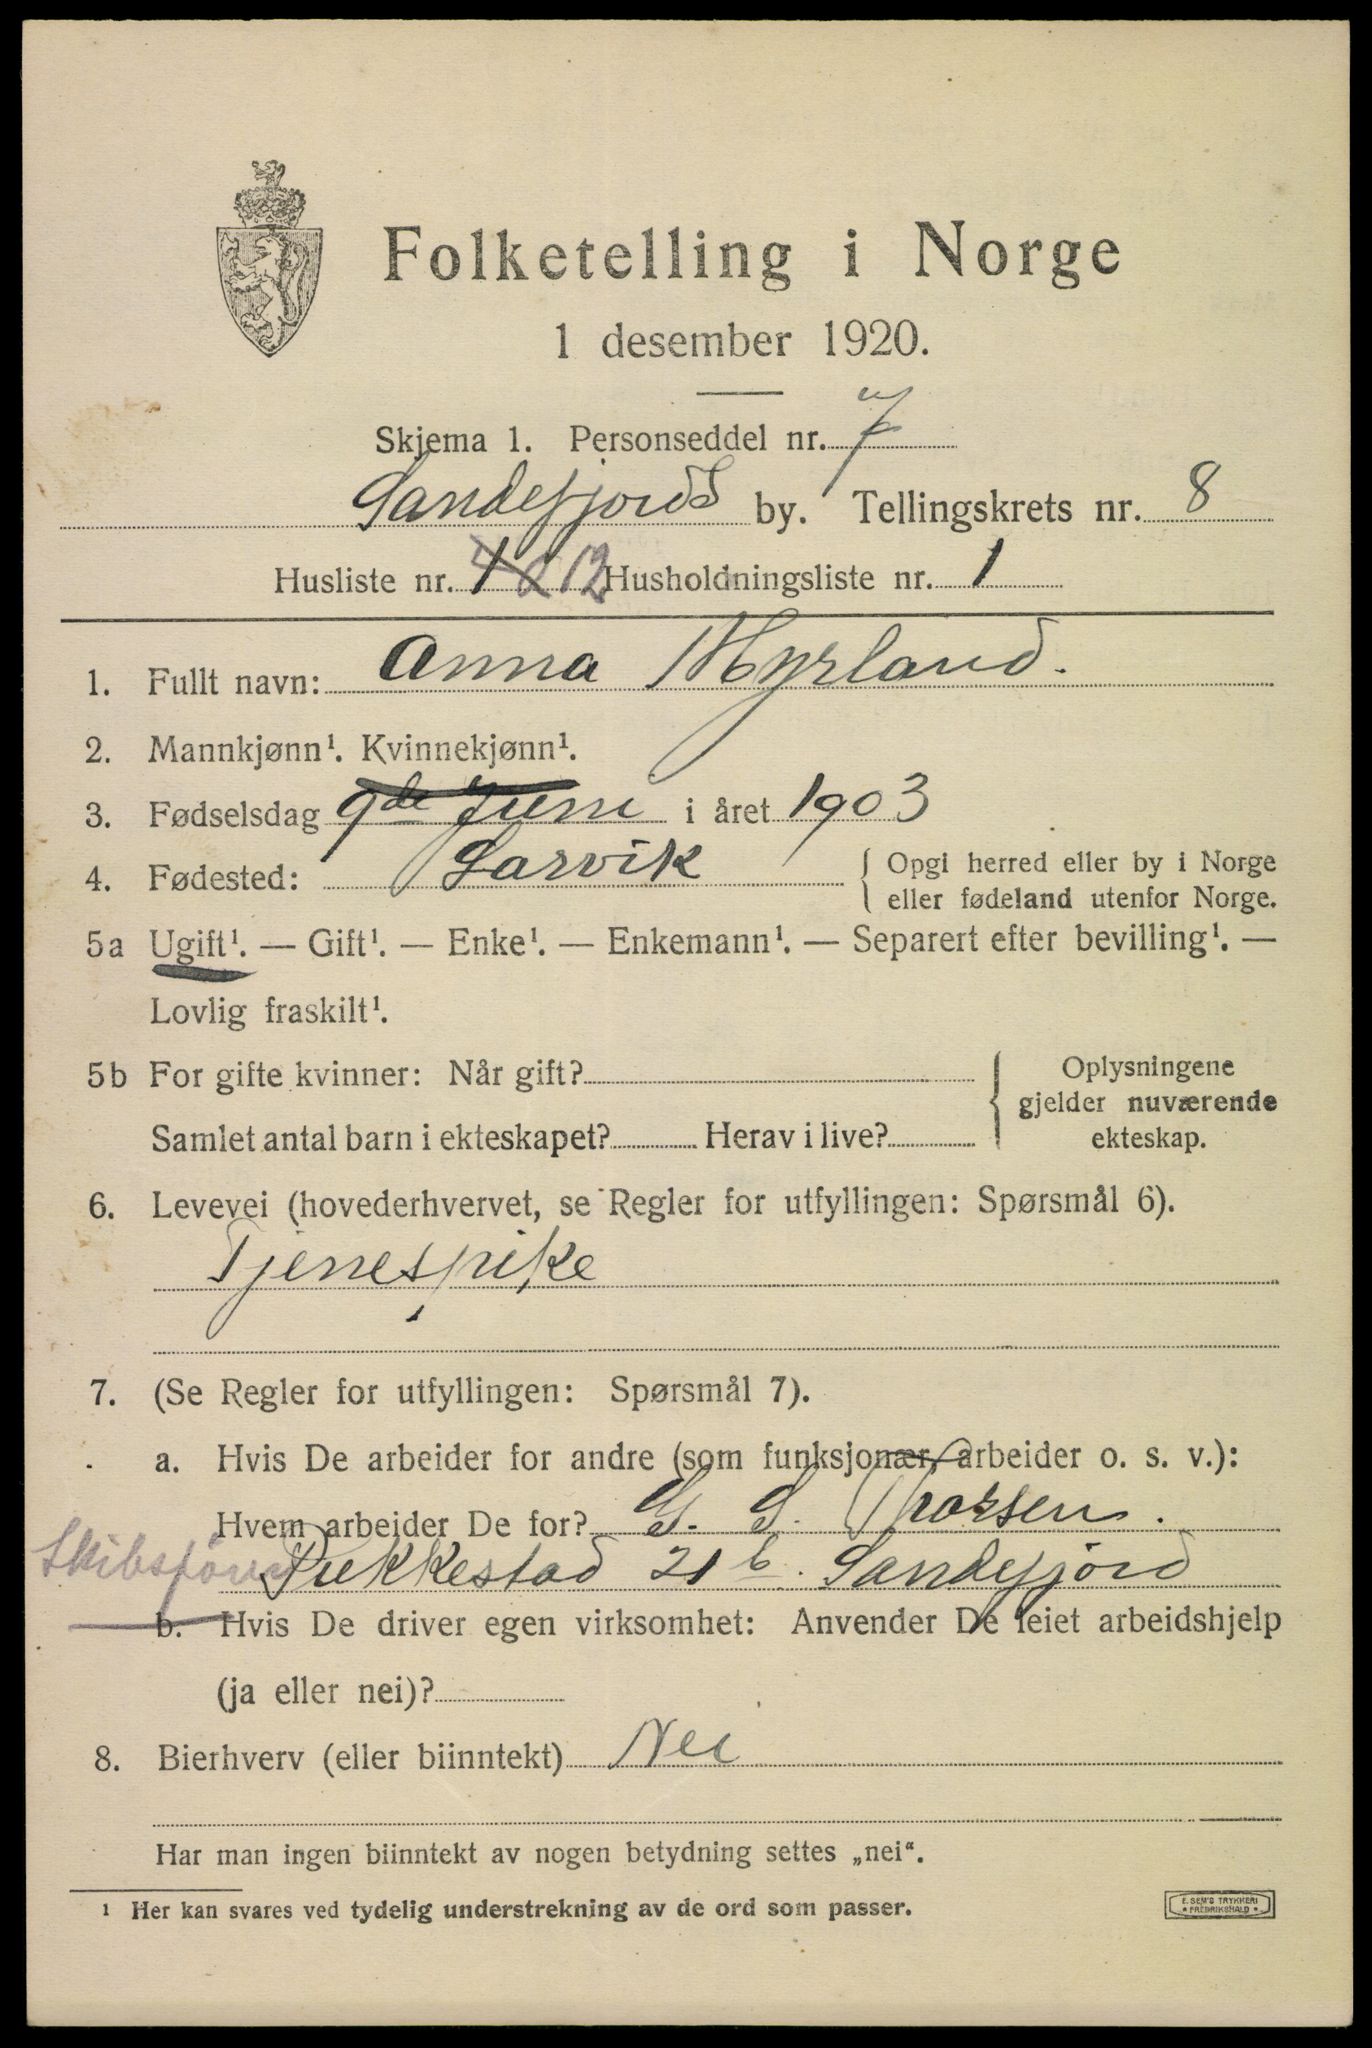 Folketelling i Norge
1 desember 1920.
Skjema 1. Personseddel nr. 7
Sandefjords by. Tellingskrets nr. 8
Husliste nr. 1 12 Husholdningsliste nr. 1
1. Fullt navn: Anna Myrland.
2. Mannkjønn¹. Kvinnekjønn¹.
3. Fødselsdag 9de Juni i året 1903
4. Fødested: Larvik { Opgi herred eller by i Norge
eller fødeland utenfor Norge.
5a Ugift¹. — Gift¹. — Enke¹. — Enkemann¹. — Separert efter bevilling¹. —
Lovlig fraskilt¹.
5b For gifte kvinner: Når gift? { Oplysningene
gjelder nuværende
Samlet antal barn i ekteskapet? Herav i live? ekteskap.
6. Levevei (hovederhvervet, se Regler for utfyllingen: Spørsmål 6).
Tjenespike
7. (Se Regler for utfyllingen: Spørsmål 7).
a. Hvis De arbeider for andre (som funksjonær, arbeider o. s. v.):
Hvem arbeider De for? G. S. Thorsen.
Skibsfører Pukkestad 21b. Sandefjord
b. Hvis De driver egen virksomhet: Anvender De leiet arbeidshjelp
(ja eller nei)?
8. Bierhverv (eller biinntekt) Nei
Har man ingen biinntekt av nogen betydning settes „nei“.
¹ Her kan svares ved tydelig understrekning av de ord som passer.
E. SEM'S TRYKKERI
• FREDRIKSHALD •